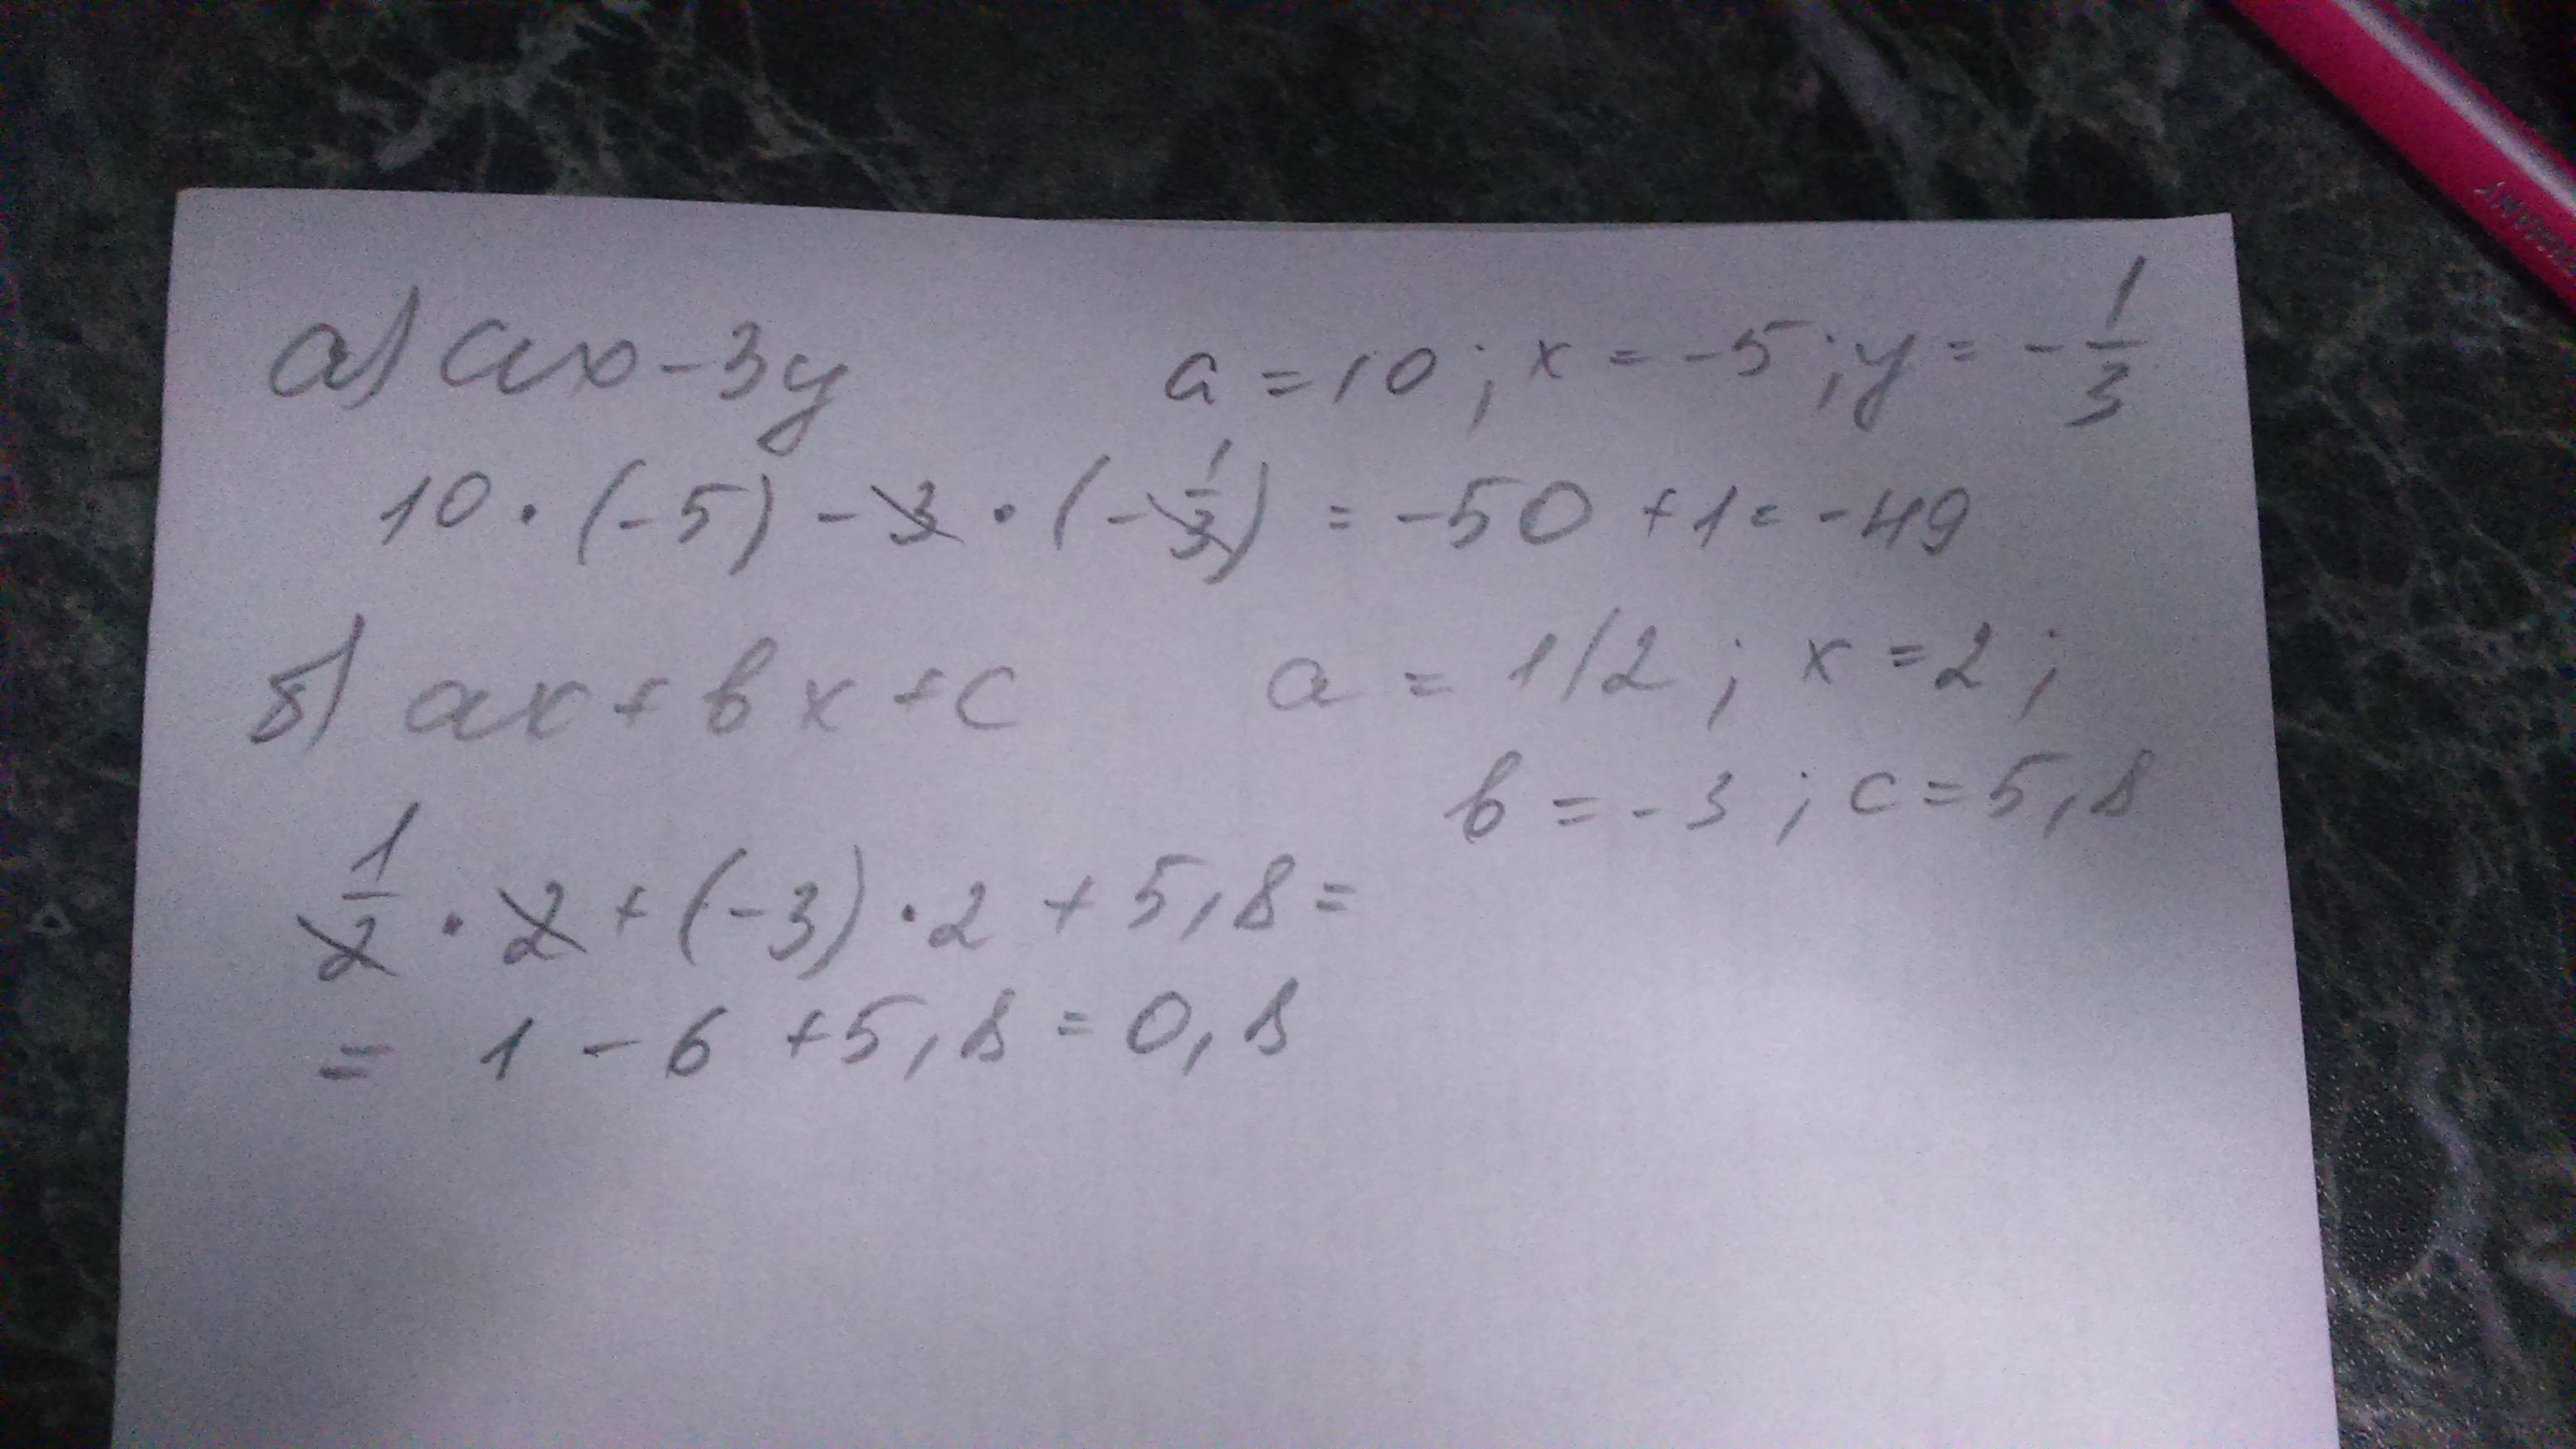 а) ax - 3y a = 10 ; x = -5 ; y = - 1/3
10 · (-5) - 3 · (- 1/3) = -50 + 1 = -49
б) ax + bx + c a = 1/2 ; x = 2 ;
b = -3 ; c = 5,8
1/2 · 2 + (-3) · 2 + 5,8 =
= 1 - 6 + 5,8 = 0,8